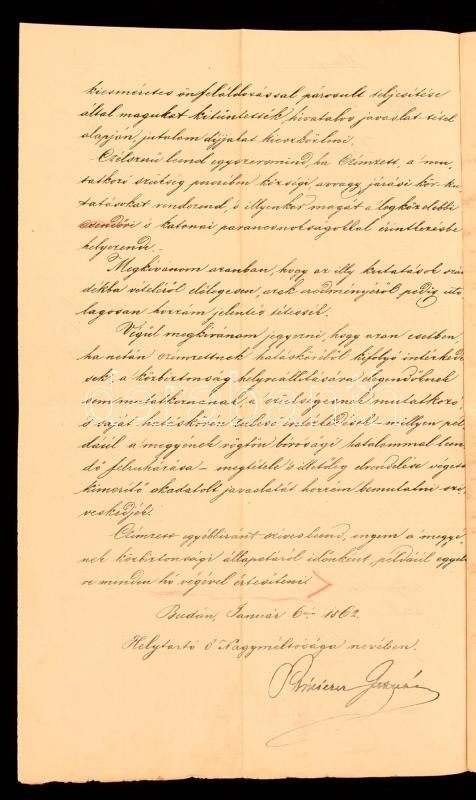 kiesméretes önfeláldozással párosult teljesitése
által magukat kitüntették, hivatalos javaslat tétel
alapján, jutalom dijjakat kieszközlni.
Czélszerü leend egyszersmind, ha Czimzett, a mu-
tatkozó szükség perczében községi, avvagy járási kör-ku-
tatásokat rendezend, s illyenkor magát a legközelebbi
csendőri s katonai parancsnokságokkal érintkezésbe
helyezendi.
Megkivánom azonban, hogy az illy kutatások szán-
dékba vételéről előlegesen, azok eredményéről pedig utó-
lagosan hozzám jelentés tétessék.
Végül megkivánom jegyezni, hogy azon esetben,
ha netán czimzettnek hatásköréből kifolyó intézkedé-
sek, a közbiztonság helyreállitására elegendőknek
nem mutatkoznának, szükségesnek mutatkozó,
s saját hatáskörén túleső intézkedések millyen pél-
dáúl a megyének rögtön birósági hatalommal leen-
dő felruházása – megtétele s illetőleg elrendelése végett
kimeritő okadatolt javaslatát hozzám bemutatni szi-
veskedjék.
Czimzett egyébbiránt szives leend, engem a megyé-
nek közbiztonsági állapotáról időnként, például egyelő-
re minden hó végével értesiteni.
Budán, Január 6án 1862.
Helytartó Ő Nagyméltósága nevében.
darabanth